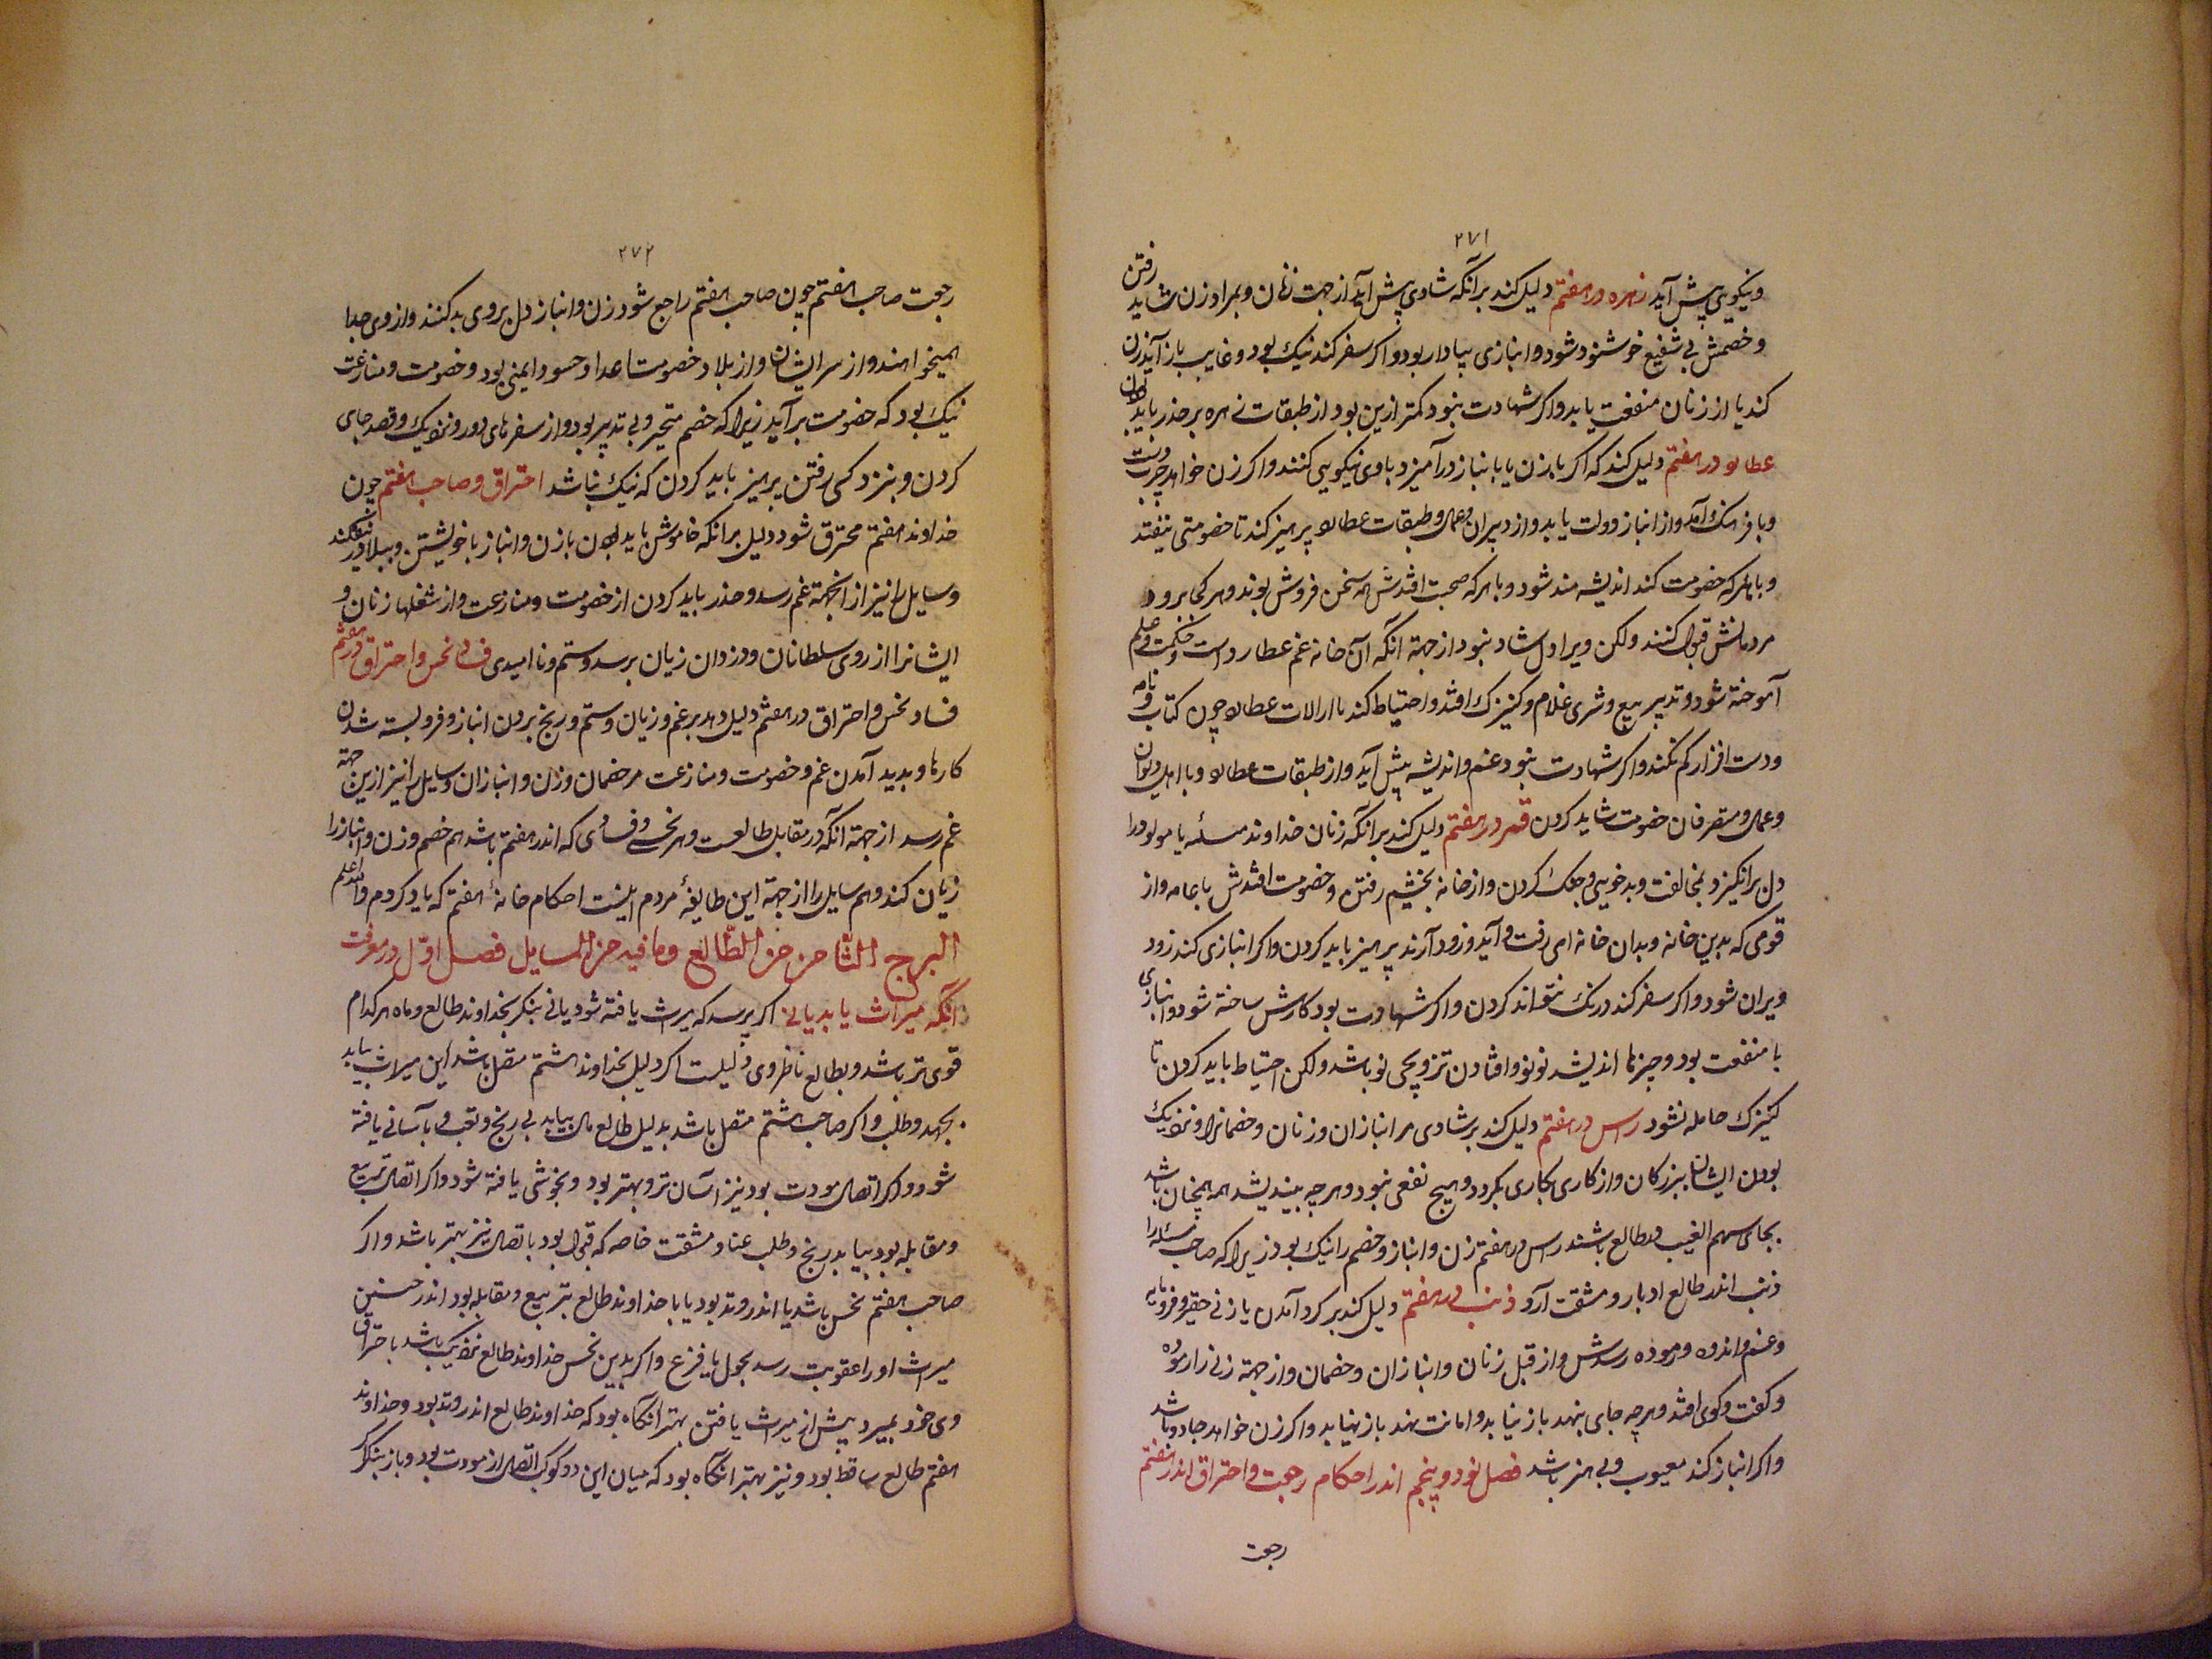 ۲۷۱
ونیکویی پیش آید زهره در هفتم دلیل کند برآنکه شادی پیش آید از جهت زنان و بمراد زن شاید رفتن
وخصمش بی شفیع خوشنود شود وانبازی بپا دار بود واکر سفر کند نیک بود وغایب باز آید زن
کند یا از زنان منفعت یابد واکر شهادت نبود کمتر ازین بود از طبقات زهره بر حذر باید
عطارد در هفتم دلیل کند که اکر با زن یا با انباز درآمیزد باوی نیکویی کنند واکر زن خواهد چرب دست
وبا فرهنک آمد واز انباز دولت یابد واز دبیران وعمال وطبقات عطارد پرهیز کند تا خصومتی نیفتد
وبا هرکه خصومت کند اندیشه مند شود وبا هرکه صحبت افتدش همه سخن فروش بوند وهر کجا برود
مردمانش قبول کنند ولکن ویرا دل شاد نبود از جهة آنکه آن خانه غم عطارد است وحکمت وعلم
آموخته شود وتدبیر بیع وشری غلام وکنیزک افتد واحتیاط کند تا از آلات عطارد چون کتاب ونامه
ودست افزار کم نکند واکر شهادت نبود غم واندیشه پیش آید واز طبقات عطارد وبا اهل دیوان
وعمال ومتصرفان خصومت شاید کردن قمر در هفتم دلیل کند برآنکه زنان خداوند مسئله یا مولود را
دل برانکیزد بمخالفت وبدخویی وجنک کردن واز خانه بخشم رفتن وخصومت افتدش با عامه واز
قومی که بدین خانه وبدان خانه همی رفت وآید وزود آرند پرهیز باید کردن واکر انبازی کند زود
ویران شود واکر سفر کند درنک نتواند کردن واکر شهادت بود کارش ساخته شود وانبازی
با منفعت بود وچیزها اندیشد نونو وافتادن تزویجی نو باشد ولکن احتیاط باید کردن تا
کنیزک حامله نشود راس در هفتم دلیل کند بر شادی مر انبازان وزنان وخصمانرا ونزدیک
بودن ایشان ببزرکان واز کاری بکاری بکردد وهیچ نفعی نبود وهرچه بیندیشد همه همچنان باشد
بجای سهم الغیب در طالع باشد راس در هفتم زن وانباز وخصم را نیک بود زیرا که صاحب مسئله را
ذنب اندر طالع ادبار ومشقت آرد ذنب در هفتم دلیل کند بر کرد آمدن با زنی حقیر وفرومایه
وغم واندوه رسدش واز قبل زنان وانبازان وخصمان واز جهة زنی
وکفت وکوی افتد وهرچه جای بنهد باز نیابد وامانت نهد باز نیابد واکر زن خواهد جادو باشد
واکر انباز کند معیوب وبی هنر باشد فصل نود وپنجم اندر احکام رجعت واحتراق اندر هفتم
رجعت
۲۷۲
رجعت صاحب هفتم چون صاحب هفتم راجع شود زن وانباز دل بروی بد کنند واز وی جدا
همیخواهند واز سر ایشان واز بلا وخصومت اعدا وحسود ایمنی بود وخصومت ومنازعت
نیک بود که خصومت برآید زیرا که خصم متحیر وبی تدبیر بود واز سفرهای دور ونزدیک وقصد جای
کردن وبنزد کسی رفتن پرهیز باید کردن که نیک نباشد احتراق وصاحب هفتم چون
خداوند هفتم محترق شود دلیل برانکه خاموش باید بودن با زن وانباز با خویشتن وببلا در نیفکند
وسایل را نیز از انجهة غم رسد وحذر باید کردن از خصومت ومنازعت واز شغلها زنان و
ایشانرا از روی سلطانان ودزدان زیان برسد وستم وناامیدی فساد نحس واحتراق در هفتم
فساد نحس واحتراق در هفتم دلیل دهد بر غم وزیان وستم ورنج بردن انباز وفرو بسته شدن
کارها وپدید آمدن غم وخصومت ومنازعت مر خصمان وزن وانبازان وسایل را نیز ازین جهة
غم رسد از جهة انکه در مقابل طالعست وهر نحسی وفسادی که اندر هفتم باشد هم خصم وزن وانباز را
زیان کند وهم سایل را از جهة این طایفهٔ مردم اینست احکام خانهٔ هفتم که یاد کردم والله اعلم
البرج الثامن من الطالع وما فیه من المسایل فصل اوّل در معرفت
آنکه میراث یابد یا نی اکر پرسد که میراث یافته شود یا نی بنکر بخداوند طالع وماه هر کدام
قوی تر باشد وبطالع ناظر وی دلیلست اکر دلیل بخداوند هشتم متصل باشد این میراث بیابد
بجهد وطلب واکر صاحب هشتم متصل باشد بدلیل طالع مال بیابد بی رنج وتعب وبآسانی یافته
شود واکر اتصال مودت بود نیز آسان تر وبهتر بود وبخوشی یافته شود واکر اتصال تربیع
ومقابله بود بیابد برنج وطلب عنا ومشقت خاصه که قبول بود باتصال نیز بهتر باشد واکر
صاحب هفتم نحس باشد یا اندر وتد بود یا با خداوند طالع بتربیع ومقابله بود اندر جستن
میراث اورا عقوبت رسد بهول یا فزع واکر بدین نحس خداوند طالع نزدیک باشد باحتراق
وی خود بمیرد پیش از میراث یافتن بهتر آنکاه بود که خداوند طالع اندر وتد بود وخداوند
هفتم طالع ساقط بود ونیز بهتر انکاه بود که میان این دو کوکب اتصال از مودت بود وباز بنکر